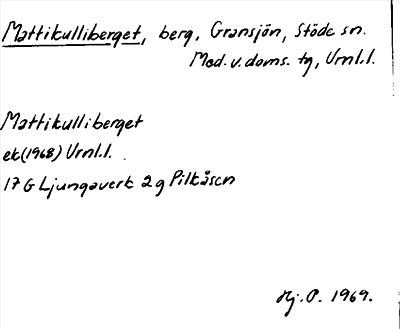 Mattikulliberget, berg, Gransjön, Stöde sn.
Med. v. doms. tg, Vrnl.l.
Mattikulliberget
ek (1968) Vrnl.l.
17 G Ljungaverk 2 g Pilkåsen
Hj. P. 1969.